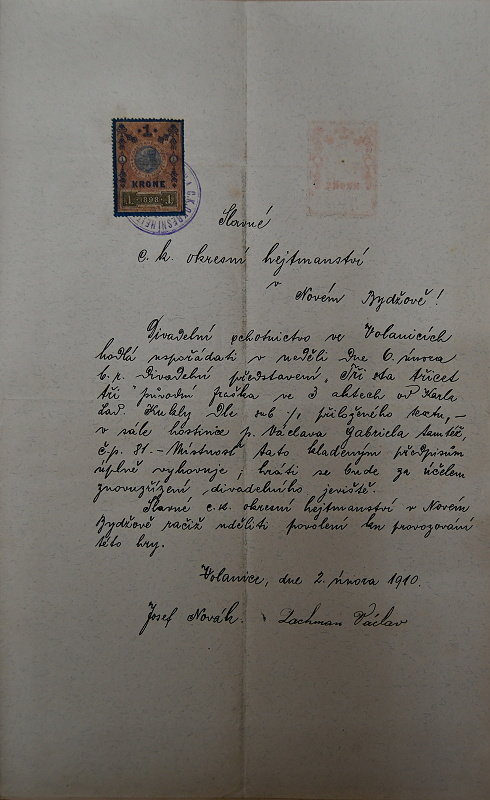 1
KRONE
1 1898 1
C.K. OKRESNÍ HEJ
Slavné
c. k. okresní hejtmanství
v
Novém Bydžově!
Divadelní ochotnictvo ve Volanicích
hodlá uspořádati v neděli dne 6. února
t. r. divadelní představení „Tři sta třicet
tři" původní fraška ve 3 aktech od Karla
Lad. Kukly dle sub ·/. přiloženého textu, –
v sále hostince p. Václava Gabriela tamtéž,
č.p. 81. – Místnost tato kladeným předpisům
úplně vyhovuje; hráti se bude za účelem
znovuzřízení divadelního jeviště.
Slavné c.k. okresní hejtmanství v Novém
Bydžově račiž uděliti povolení ku provozování
této hry.
Volanice, dne 2. února 1910.
Josef Novák. Lachman Václav